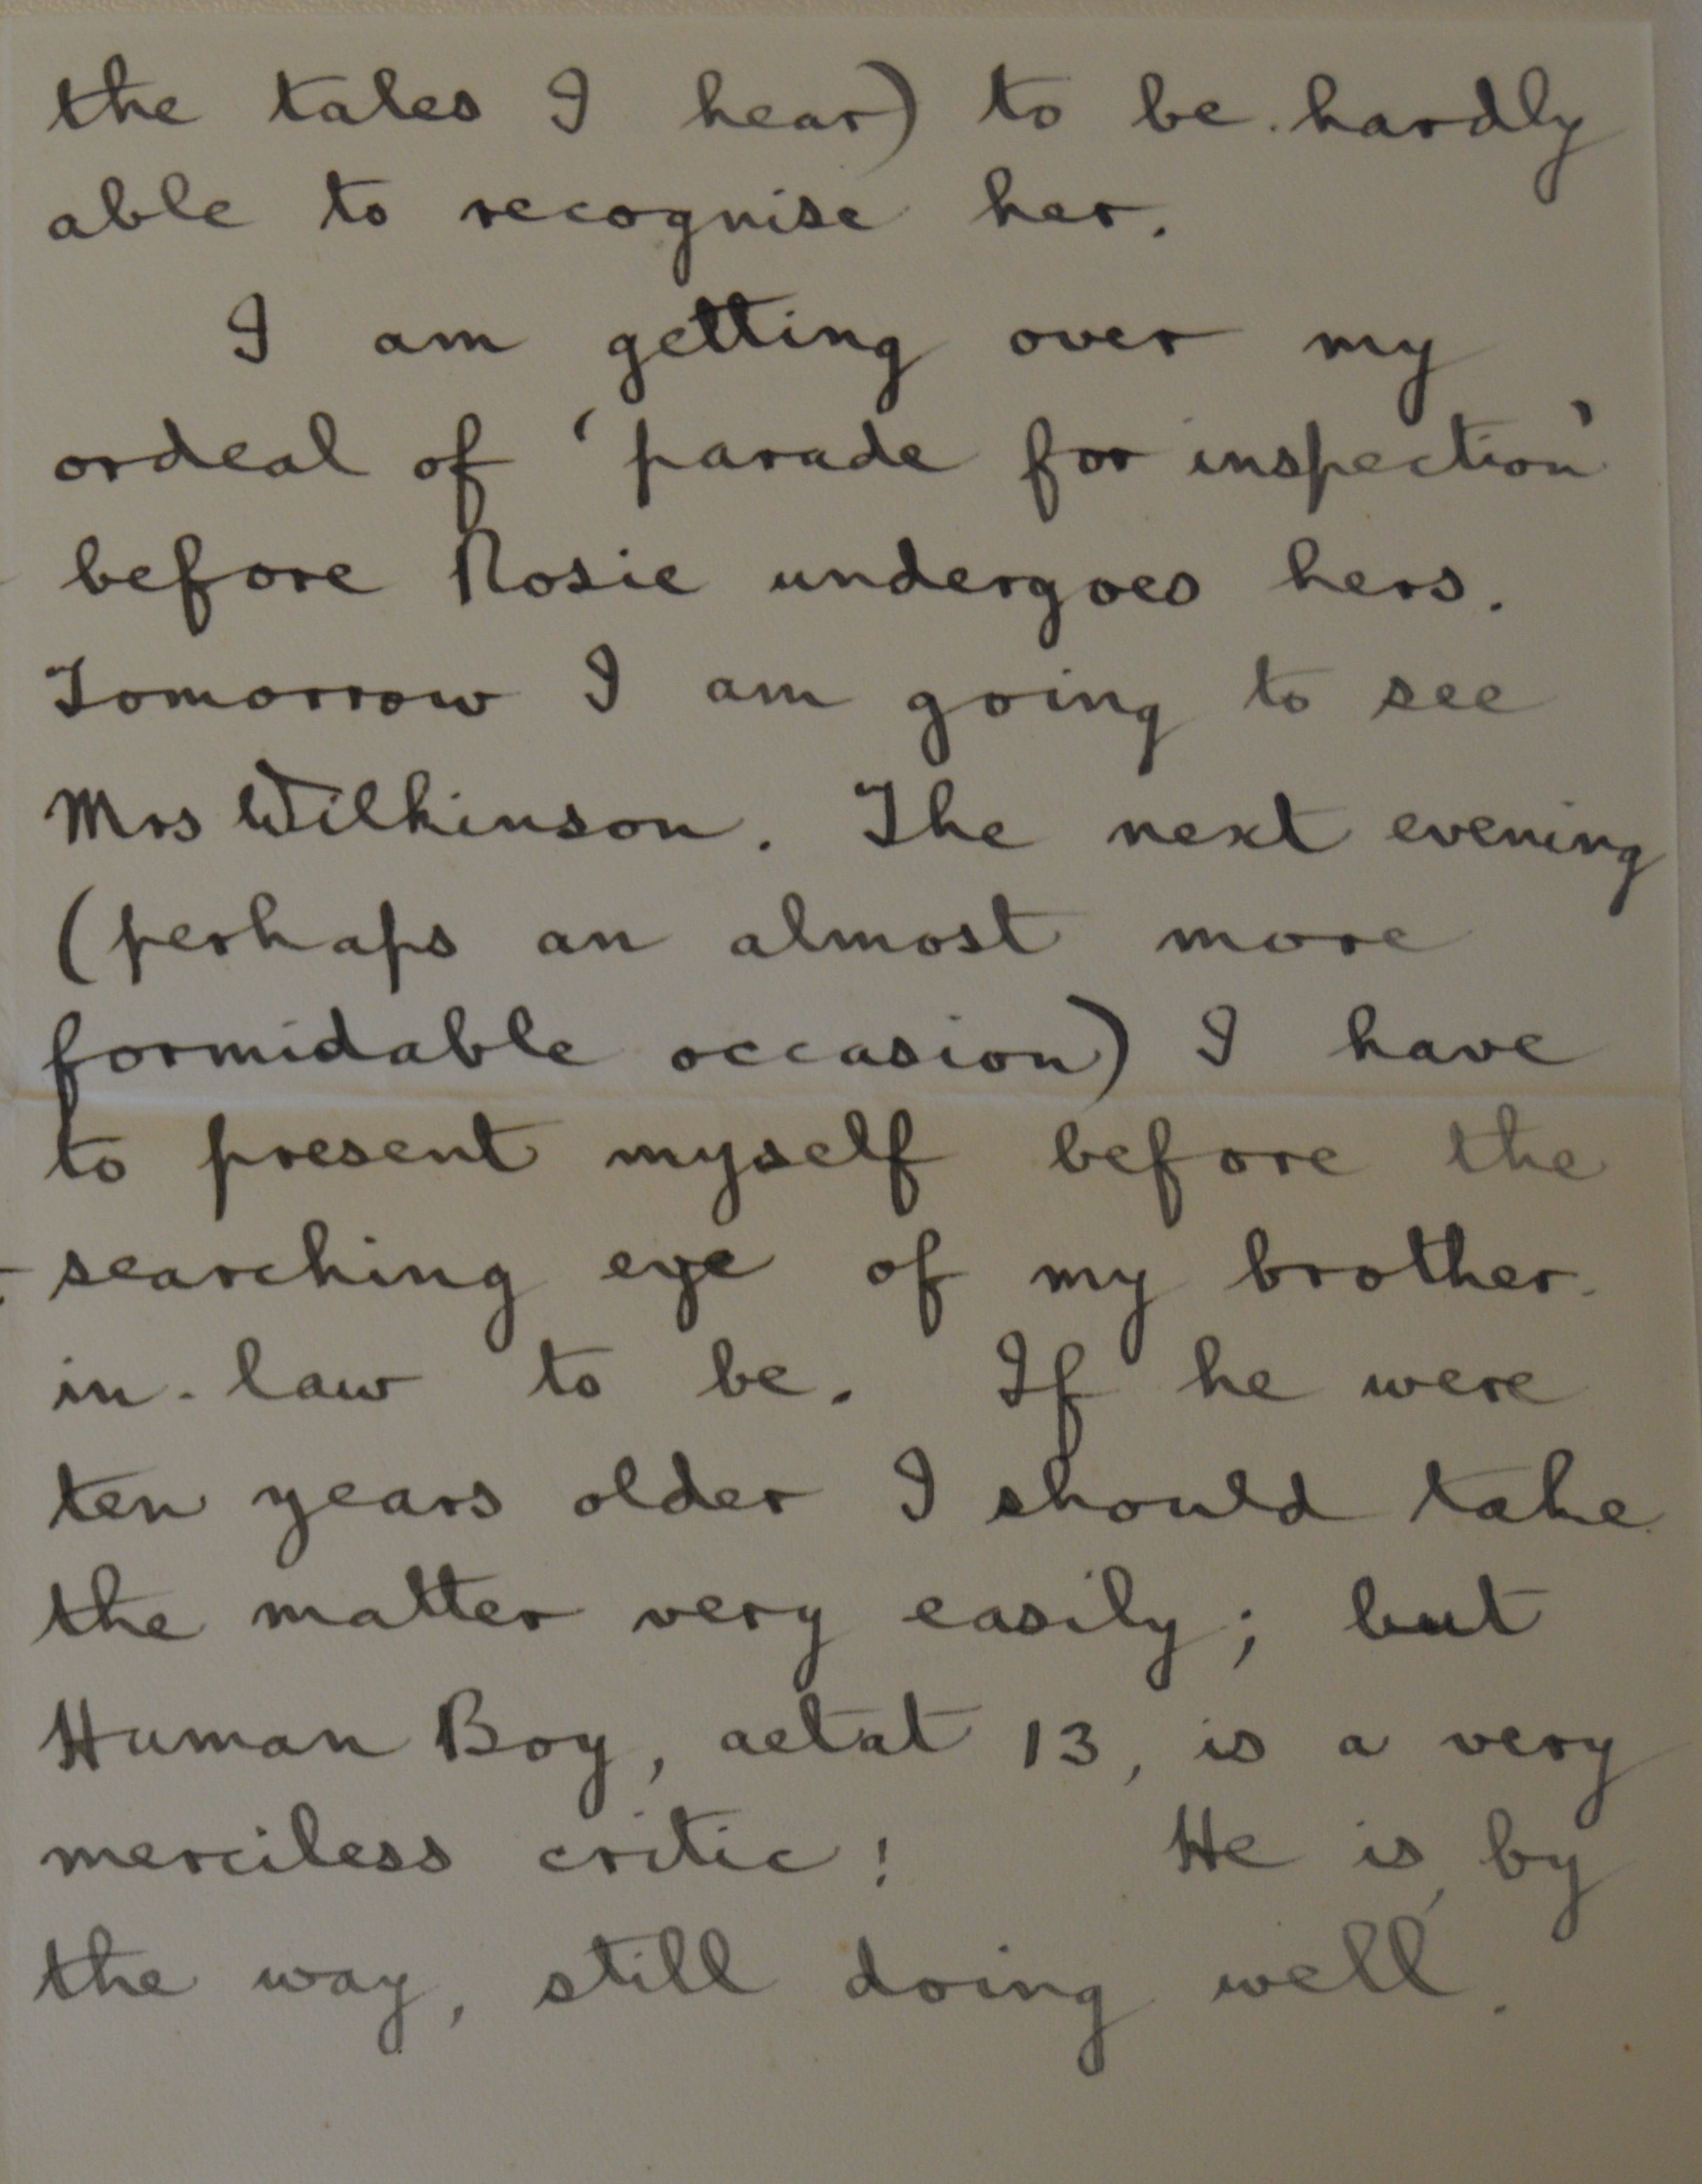 the tales I hear) to be hardly
able to recognise her.
I am getting over my
ordeal of 'parade for inspection'
before Rosie undergoes hers.
Tomorrow I am going to see
Mrs Wilkinson. The next evening
(perhaps an almost more
formidable occasion) I have
to present myself before the
searching eye of my brother-
in-law to be. If he were
ten years older I should take
the matter very easily; but
Human Boy, aetat 13, is a very
merciless critic! He is, by
the way, still doing well.